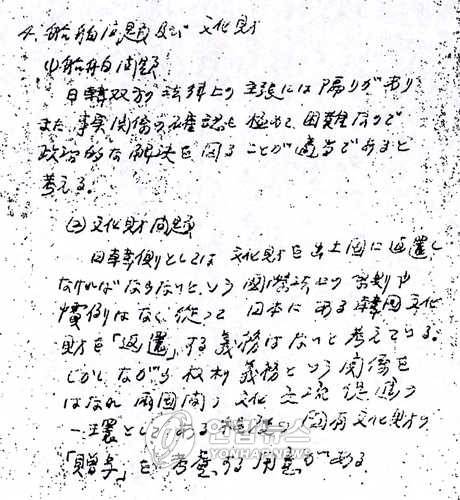 4. 船舶問題及び文化財
(1)船舶問題
日韓双方の法律上の主張には隔りがあり
また、事実関係の確認も極めて困難なので
政治的な解決を図ることが適当であると
考える。
(2)文化財問題
日韓側としては文化財を出土国に返還し
なければならないという国際法上の原則や
慣例はなく、従って日本にある韓国文化
財を「返還」する義務はないと考えている。
しかしながら権利義務という関係を
はなれ両国間の文化交流促進の
一環としてある種の国有文化財の
「贈与」を考慮する用意がある
연합뉴스
YONHAP NEWS